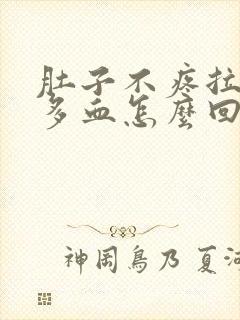 肚子不疼拉
多血怎麼回
神岡鳥乃 夏河